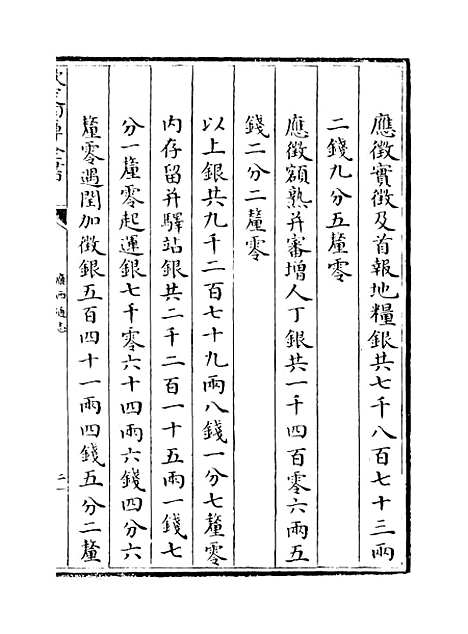 應徵實徵及首報地糧銀共七千八百七十三兩
二錢九分五釐零
應徵額熟并審增人丁銀共一千四百零六兩五
錢二分二釐零
以上銀共九千二百七十九兩八錢一分七釐零
内存留并驛站銀共二千二百一十五兩一錢七
分一釐零起運銀七千零六十四兩六錢四分六
釐零遇閏加徵銀五百四十一兩四錢五分二釐
廣西通志